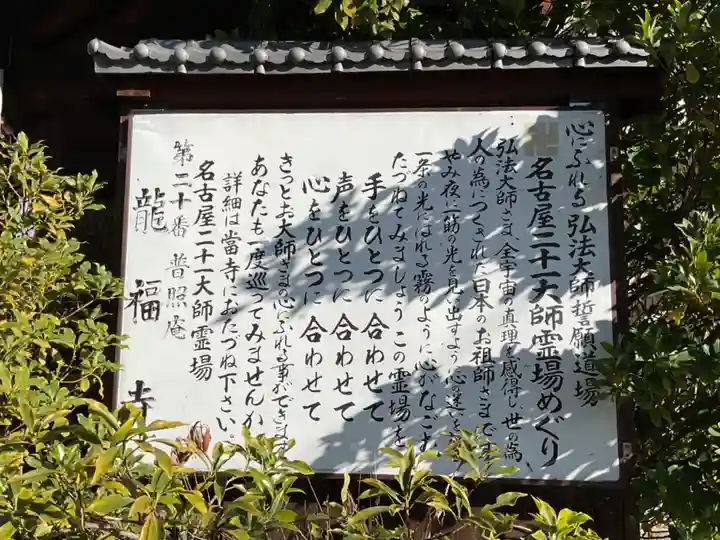 心にふれる弘法大師誓願道場
卍 名古屋二十一大師霊場めぐり
弘法大師さま、全宇宙の真理を感得し、世の為、
人の為につくされた日本のお祖師さまです
やみ夜に一筋の光を見い出すよう心の迷
一条の光にはれる霧のように心がなごむ
たづねてみましょうこの霊場を
手をひとつに合わせて
声をひとつに合わせて
心をひとつに合わせて
きっとお大師さまの心にふれる事ができます
あなたも一度巡ってみませんか
詳細は當寺におたづね下さい。
名古屋二十一大師霊場
第二十番 普照庵
龍福寺